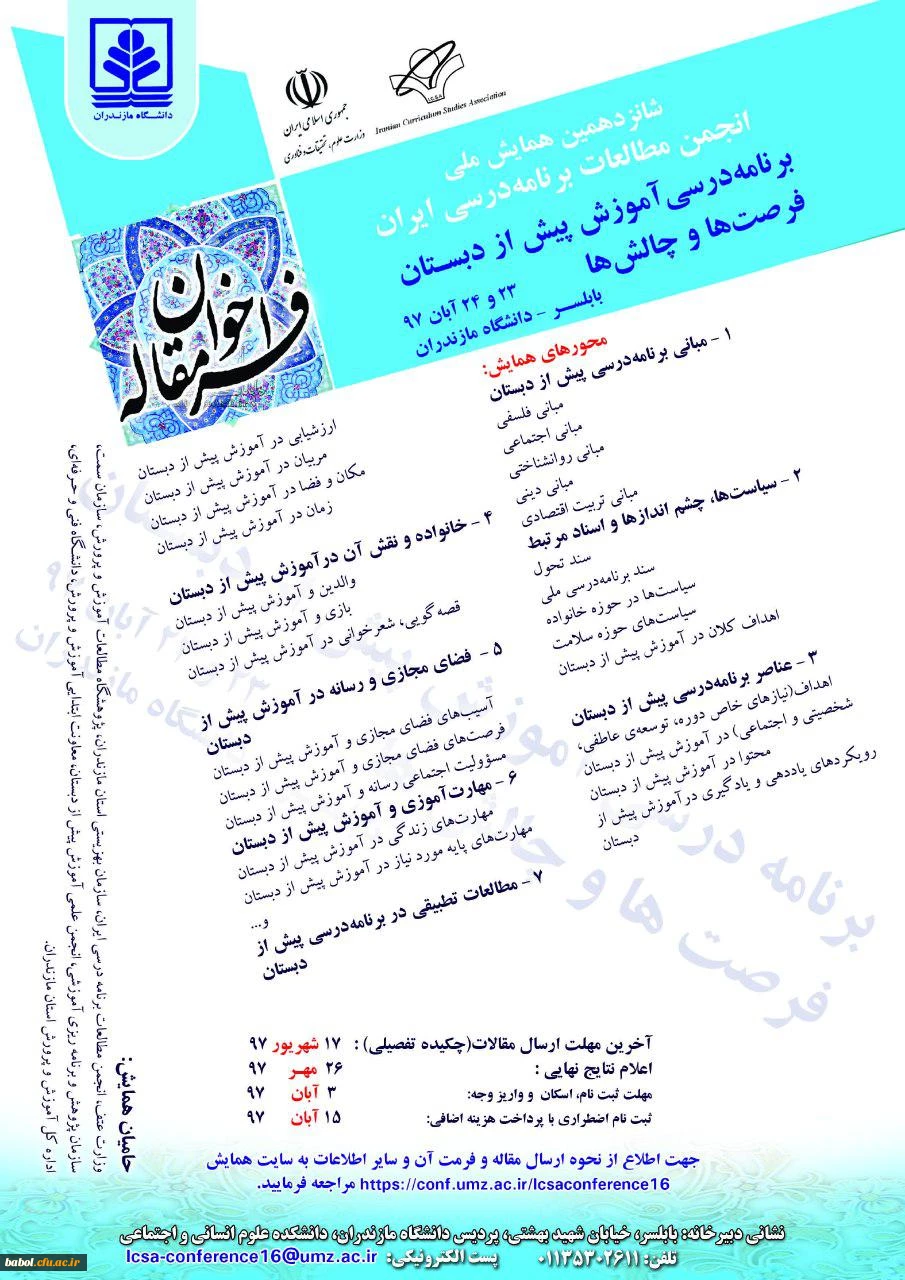 دانشگاه مازندران
جمهوری اسلامی ایران
وزارت علوم، تحقیقات و فناوری
I.C.S.A
Iranian Curriculum Studies Association
شانزدهمین همایش ملی
انجمن مطالعات برنامه‌درسی ایران
برنامه‌درسی آموزش پیش از دبستان
فرصت‌ها و چالش‌ها
۲۳ و ۲۴ آبان ۹۷
بابلسر - دانشگاه مازندران
فراخوان مقاله
محورهای همایش:
۱ - مبانی برنامه‌درسی پیش از دبستان
مبانی فلسفی
مبانی اجتماعی
مبانی روانشناختی
مبانی دینی
مبانی تربیت اقتصادی
۲ - سیاست‌ها، چشم اندازها و اسناد مرتبط
سند تحول
سند برنامه‌درسی ملی
سیاست‌ها در حوزه خانواده
سیاست‌های حوزه سلامت
اهداف کلان در آموزش پیش از دبستان
۳ - عناصر برنامه‌درسی پیش از دبستان
اهداف(نیازهای خاص دوره، توسعه‌ی عاطفی،
شخصیتی و اجتماعی) در آموزش پیش از دبستان
محتوا در آموزش پیش از دبستان
رویکردهای یاددهی و یادگیری در آموزش پیش از
دبستان
ارزشیابی در آموزش پیش از دبستان
مربیان در آموزش پیش از دبستان
مکان و فضا در آموزش پیش از دبستان
زمان در آموزش پیش از دبستان
۴ - خانواده و نقش آن درآموزش پیش از دبستان
والدین و آموزش پیش از دبستان
بازی و آموزش پیش از دبستان
قصه گویی، شعرخوانی در آموزش پیش از دبستان
۵ - فضای مجازی و رسانه در آموزش پیش از
دبستان
آسیب‌های فضای مجازی و آموزش پیش از دبستان
فرصت‌های فضای مجازی و آموزش پیش از دبستان
مسؤولیت اجتماعی رسانه و آموزش پیش از دبستان
۶ - مهارت‌آموزی و آموزش پیش از دبستان
مهارت‌های زندگی در آموزش پیش از دبستان
مهارت‌های پایه مورد نیاز در آموزش پیش از دبستان
و...
۷ - مطالعات تطبیقی در برنامه‌درسی پیش از
دبستان
حامیان همایش:
وزارت عتف، انجمن مطالعات برنامه درسی ایران، سازمان بهزیستی استان مازندران، پژوهشگاه مطالعات آموزش و پرورش، سازمان سمت،
سازمان پژوهش و برنامه ریزی آموزشی، انجمن علمی آموزش پیش از دبستان، معاونت ابتدایی آموزش و پرورش، دانشگاه فنی و حرفه‌ای،
اداره کل آموزش و پرورش استان مازندران.
آخرین مهلت ارسال مقالات(چکیده تفصیلی) : ۱۷ شهریور ۹۷
اعلام نتایج نهایی : ۲۶ مهر ۹۷
مهلت ثبت نام، اسکان و واریز وجه: ۳ آبان ۹۷
ثبت نام اضطراری با پرداخت هزینه اضافی: ۱۵ آبان ۹۷
جهت اطلاع از نحوه ارسال مقاله و فرمت آن و سایر اطلاعات به سایت همایش
https://conf.umz.ac.ir/Icsaconference16 مراجعه فرمایید.
نشانی دبیرخانه: بابلسر، خیابان شهید بهشتی، پردیس دانشگاه مازندران، دانشکده علوم انسانی و اجتماعی
تلفن: ۰۱۱۳۵۳۰۲۶۱۱ پست الکترونیکی: Icsa-conference16@umz.ac.ir
babol.cfu.ac.ir